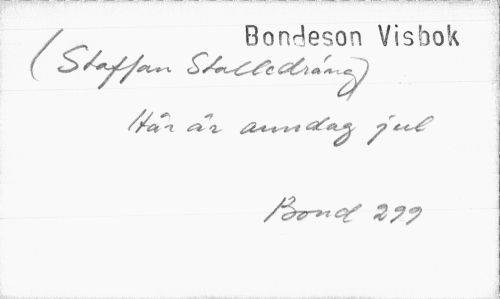 Bondeson Visbok
(Staffan Stalledräng)
Här är anndag jul
Bond 299